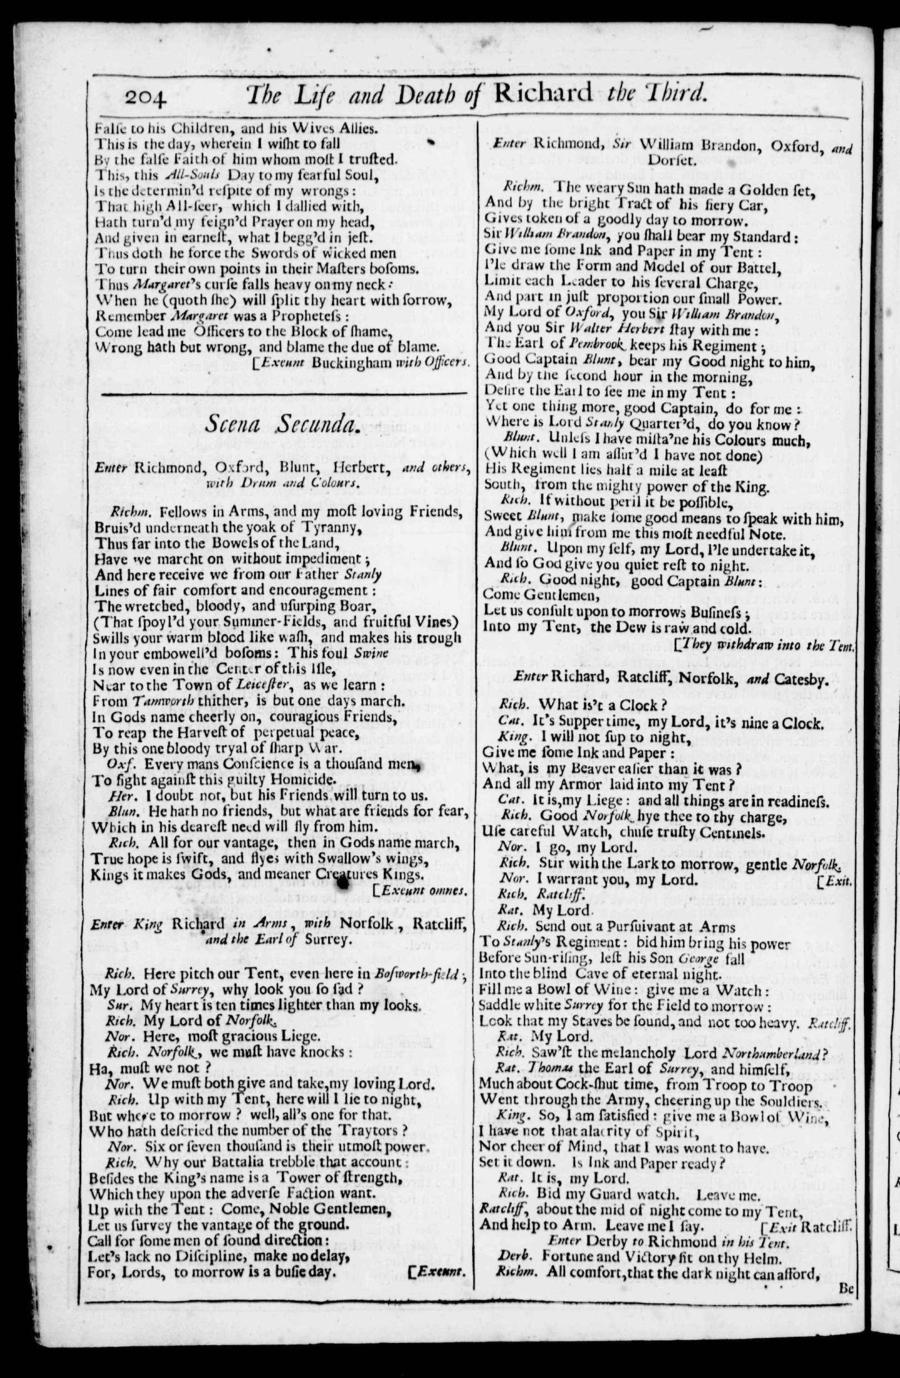 204 The Life and Death of Richard the Third.
False to his Children, and his Wives Allies.
This is the day, wherein I wisht to fall
By the false Faith of him whom most I trusted.
This, this All-Souls Day to my fearful Soul,
Is the determin'd respite of my wrongs:
That high All-seer, which I dallied with,
Hath turn'd my feign'd Prayer on my head,
And given in earnest, what I begg'd in jest.
Thus doth he force the Swords of wicked men
To turn their own points in their Masters bosoms.
Thus Margaret's curse falls heavy on my neck:
When he (quoth she) will split thy heart with sorrow,
Remember Margaret was a Prophetess:
Come lead me Officers to the Block of shame,
Wrong hath but wrong, and blame the due of blame.
[Exeunt Buckingham with Officers.
Scena Secunda.
Enter Richmond, Oxford, Blunt, Herbert, and others,
with Drum and Colours.
Richm. Fellows in Arms, and my most loving Friends,
Bruis'd underneath the yoak of Tyranny,
Thus far into the Bowels of the Land,
Have we marcht on without impediment;
And here receive we from our Father Stanly
Lines of fair comfort and encouragement:
The wretched, bloody, and usurping Boar,
(That spoyl'd your Summer-Fields, and fruitful Vines)
Swills your warm blood like wash, and makes his trough
In your embowell'd bosoms: This foul Swine
Is now even in the Center of this Isle,
Near to the Town of Leicester, as we learn:
From Tamworth thither, is but one days march.
In Gods name cheerly on, couragious Friends,
To reap the Harvest of perpetual peace,
By this one bloody tryal of sharp War.
Oxf. Every mans Conscience is a thousand men,
To fight against this guilty Homicide.
Her. I doubt not, but his Friends will turn to us.
Blun. He hath no friends, but what are friends for fear,
Which in his dearest need will fly from him.
Rich. All for our vantage, then in Gods name march,
True hope is swift, and flyes with Swallow's wings,
Kings it makes Gods, and meaner Creatures Kings.
[Exeunt omnes.
Enter King Richard in Arms, with Norfolk, Ratcliff,
and the Earl of Surrey.
Rich. Here pitch our Tent, even here in Bosworth-field;
My Lord of Surrey, why look you so sad?
Sur. My heart is ten times lighter than my looks.
Rich. My Lord of Norfolk.
Nor. Here, most gracious Liege.
Rich. Norfolk, we must have knocks:
Ha, must we not?
Nor. We must both give and take, my loving Lord.
Rich. Up with my Tent, here will I lie to night,
But where to morrow? well, all's one for that.
Who hath descried the number of the Traytors?
Nor. Six or seven thousand is their utmost power.
Rich. Why our Battalia trebble that account:
Besides the King's name is a Tower of strength,
Which they upon the adverse Faction want.
Up with the Tent: Come, Noble Gentlemen,
Let us survey the vantage of the ground.
Call for some men of sound direction:
Let's lack no Discipline, make no delay,
For, Lords, to morrow is a busie day. [Exeunt.
Enter Richmond, Sir William Brandon, Oxford, and
Dorset.
Richm. The weary Sun hath made a Golden set,
And by the bright Tract of his fiery Car,
Gives token of a goodly day to morrow.
Sir William Brandon, you shall bear my Standard:
Give me some Ink and Paper in my Tent:
I'le draw the Form and Model of our Battel,
Limit each Leader to his several Charge,
And part in just proportion our small Power.
My Lord of Oxford, you Sir William Brandon,
And you Sir Walter Herbert stay with me:
The Earl of Pembrook keeps his Regiment;
Good Captain Blunt, bear my Good night to him,
And by the second hour in the morning,
Desire the Earl to see me in my Tent:
Yet one thing more, good Captain, do for me:
Where is Lord Stanly Quarter'd, do you know?
Blunt. Unless I have mista'ne his Colours much,
(Which well I am assur'd I have not done)
His Regiment lies half a mile at least
South, from the mighty power of the King.
Rich. If without peril it be possible,
Sweet Blunt, make some good means to speak with him,
And give him from me this most needful Note.
Blunt. Upon my self, my Lord, I'le undertake it,
And so God give you quiet rest to night.
Rich. Good night, good Captain Blunt:
Come Gentlemen,
Let us consult upon to morrows Business;
Into my Tent, the Dew is raw and cold.
[They withdraw into the Tent.
Enter Richard, Ratcliff, Norfolk, and Catesby.
Rich. What is't a Clock?
Cat. It's Supper time, my Lord, it's nine a Clock.
King. I will not sup to night,
Give me some Ink and Paper:
What, is my Beaver easier than it was?
And all my Armor laid into my Tent?
Cat. It is, my Liege: and all things are in readiness.
Rich. Good Norfolk hye thee to thy charge,
Use careful Watch, chuse trusty Centinels.
Nor. I go, my Lord.
Rich. Stir with the Lark to morrow, gentle Norfolk.
Nor. I warrant you, my Lord. [Exit.
Rich. Ratcliff.
Rat. My Lord.
Rich. Send out a Pursuivant at Arms
To Stanly's Regiment: bid him bring his power
Before Sun-rising, lest his Son George fall
Into the blind Cave of eternal night.
Fill me a Bowl of Wine: give me a Watch:
Saddle white Surrey for the Field to morrow:
Look that my Staves be sound, and not too heavy. Ratcliff.
Rat. My Lord.
Rich. Saw'st the melancholy Lord Northumberland?
Rat. Thomas the Earl of Surrey, and himself,
Much about Cock-shut time, from Troop to Troop
Went through the Army, cheering up the Souldiers.
King. So, I am satisfied: give me a Bowl of Wine,
I have not that alacrity of Spirit,
Nor cheer of Mind, that I was wont to have.
Set it down. Is Ink and Paper ready?
Rat. It is, my Lord.
Rich. Bid my Guard watch. Leave me.
Ratcliff, about the mid of night come to my Tent,
And help to Arm. Leave me I say. [Exit Ratcliff.
Enter Derby to Richmond in his Tent.
Derb. Fortune and Victory sit on thy Helm.
Richm. All comfort, that the dark night can afford,
Be